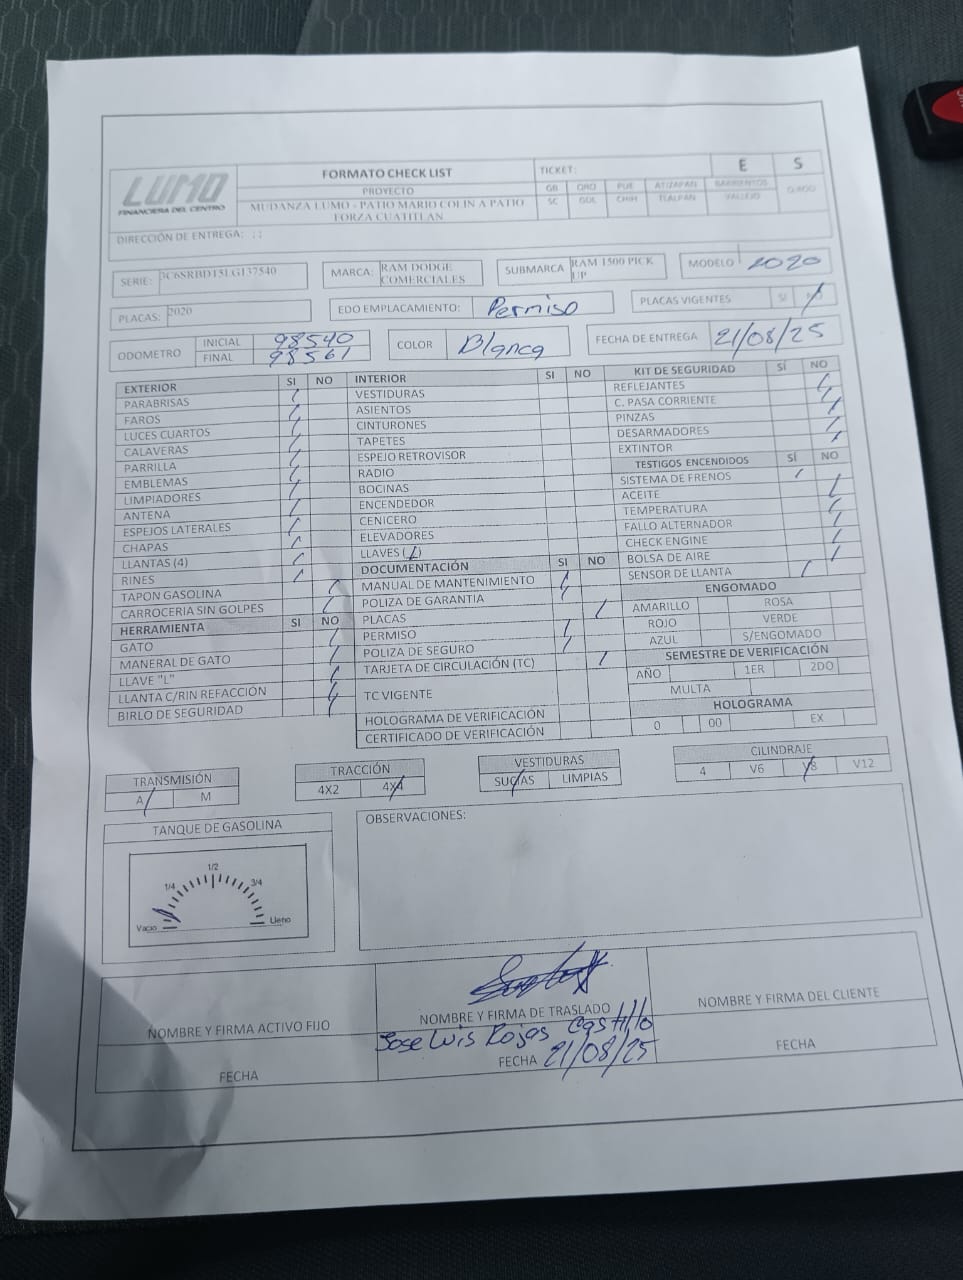 LUMO
FINANCIERA DEL CENTRO
FORMATO CHECK LIST
PROYECTO
MUDANZA LUMO - PATIO MARIO COLIN A PATIO
FORZA CUATITLAN
TICKET: E S
GB QRO PUE ATIZAPAN BARRIENTOS
SC GDL CHIH TLALPAN VALLEJO
DIRECCIÓN DE ENTREGA: ; ;
SERIE: 3C6SRBDT5LG137540
MARCA: RAM DODGE
COMERCIALES
SUBMARCA RAM 1500 PICK
UP
MODELO 2020
PLACAS: 2020
EDO EMPLACAMIENTO: Permiso
PLACAS VIGENTES SI NO
ODOMETRO
INICIAL 98540
FINAL 98561
COLOR Blanca
FECHA DE ENTREGA 21/08/25
EXTERIOR SI NO
PARABRISAS
FAROS
LUCES CUARTOS
CALAVERAS
PARRILLA
EMBLEMAS
LIMPIADORES
ANTENA
ESPEJOS LATERALES
CHAPAS
LLANTAS (4)
RINES
TAPON GASOLINA
CARROCERIA SIN GOLPES
HERRAMIENTA SI NO
GATO
MANERAL DE GATO
LLAVE "L"
LLANTA C/RIN REFACCIÓN
BIRLO DE SEGURIDAD
INTERIOR SI NO
VESTIDURAS
ASIENTOS
CINTURONES
TAPETES
ESPEJO RETROVISOR
RADIO
BOCINAS
ENCENDEDOR
CENICERO
ELEVADORES
LLAVES (1)
DOCUMENTACIÓN SI NO
MANUAL DE MANTENIMIENTO
POLIZA DE GARANTIA
PLACAS
PERMISO
POLIZA DE SEGURO
TARJETA DE CIRCULACIÓN (TC)
TC VIGENTE
HOLOGRAMA DE VERIFICACIÓN
CERTIFICADO DE VERIFICACIÓN
KIT DE SEGURIDAD SÍ NO
REFLEJANTES
C. PASA CORRIENTE
PINZAS
DESARMADORES
EXTINTOR
TESTIGOS ENCENDIDOS SÍ NO
SISTEMA DE FRENOS
ACEITE
TEMPERATURA
FALLO ALTERNADOR
CHECK ENGINE
BOLSA DE AIRE
SENSOR DE LLANTA
ENGOMADO
AMARILLO ROSA
ROJO VERDE
AZUL S/ENGOMADO
SEMESTRE DE VERIFICACIÓN
AÑO 1ER 2DO
MULTA
HOLOGRAMA
0 00 EX
TRANSMISIÓN
A M
TRACCIÓN
4X2 4X4
VESTIDURAS
SUCIAS LIMPIAS
CILINDRAJE
4 V6 V8 V12
TANQUE DE GASOLINA
1/2
1/4 3/4
Vacio Lleno
OBSERVACIONES:
NOMBRE Y FIRMA ACTIVO FIJO
FECHA
NOMBRE Y FIRMA DE TRASLADO
Jose Luis Rojas Castillo
FECHA 21/08/25
NOMBRE Y FIRMA DEL CLIENTE
FECHA